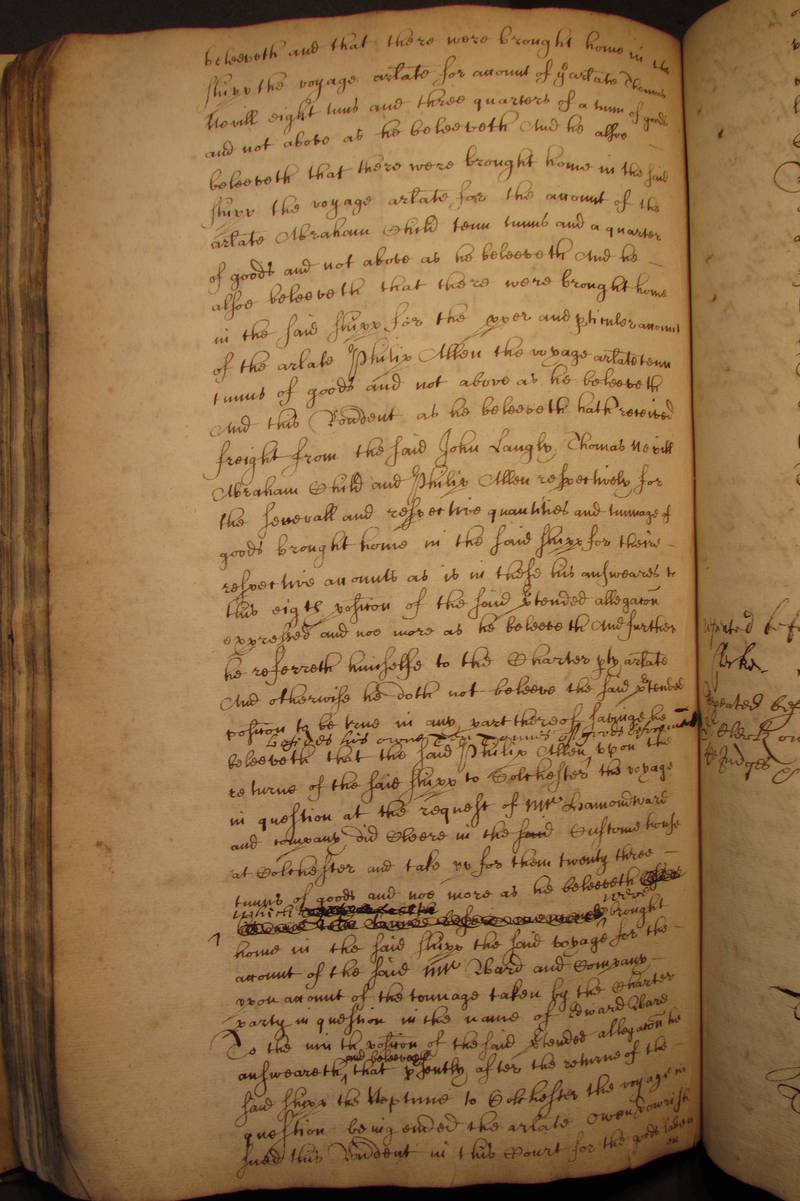 beleeveth and that there were brought home in the
shipp the voyage arlate for account of the arlate Thomas
Nevill eight tuns and three quarters of a tunn of goods
and not above as he beleeveth And he alsoe
beleeveth that there were brought home in the said
shipp the voyage arlate for the account of the
arlate Abraham Child tenn tunns and a quarter
of goods and not above as he beleeveth And he
alsoe beleeveth that there were brought home
in the said shipp for the pper and pticuler account
of the arlate Philip Allen the voyage arlate tenn
tunns of goods and not above as he beleeveth
And this Rondent as he beleeveth hath received
freight from the said John Langly, Thomas Nevill
Abraham Child and Philip Allen respectively for
the severall and respective quantities and tunnage of
goods brought home in the said shipp for their
respective accounts as is in these his answeares to
this eigth position of the said ptended allegacon
expressed and noe more as he beleeveth And further
he referreth himselfe to the Charter pty arlate
And otherwise he doth not beleeve the said ptended
position to be true in any part thereof saveing he
besides his owne tenn tunns of goods
beleeveth that the said Philip Allen upon the
returne of the said shipp to Colchester the voyage
in question at the request of Mr Hamond Ward
and company did Cleere in the said Custome house
at Colchester and take up for them twenty three
tunns of goods and noe more as he beleeveth
which were
brought
home in the said shipp the said voyage for the
account of the said Mr Ward and Company
upon account of the tonnage taken by the Charter
party in question in the name of Edward Ward
To the ninth position of the said ptended allegacon he
and beleeveth
answeareth that psently after the returne of the
said shipp the Neptune to Colchester the voyage in
question being ended the arlate Owen
sued this Rondent in this Court for the goods
on